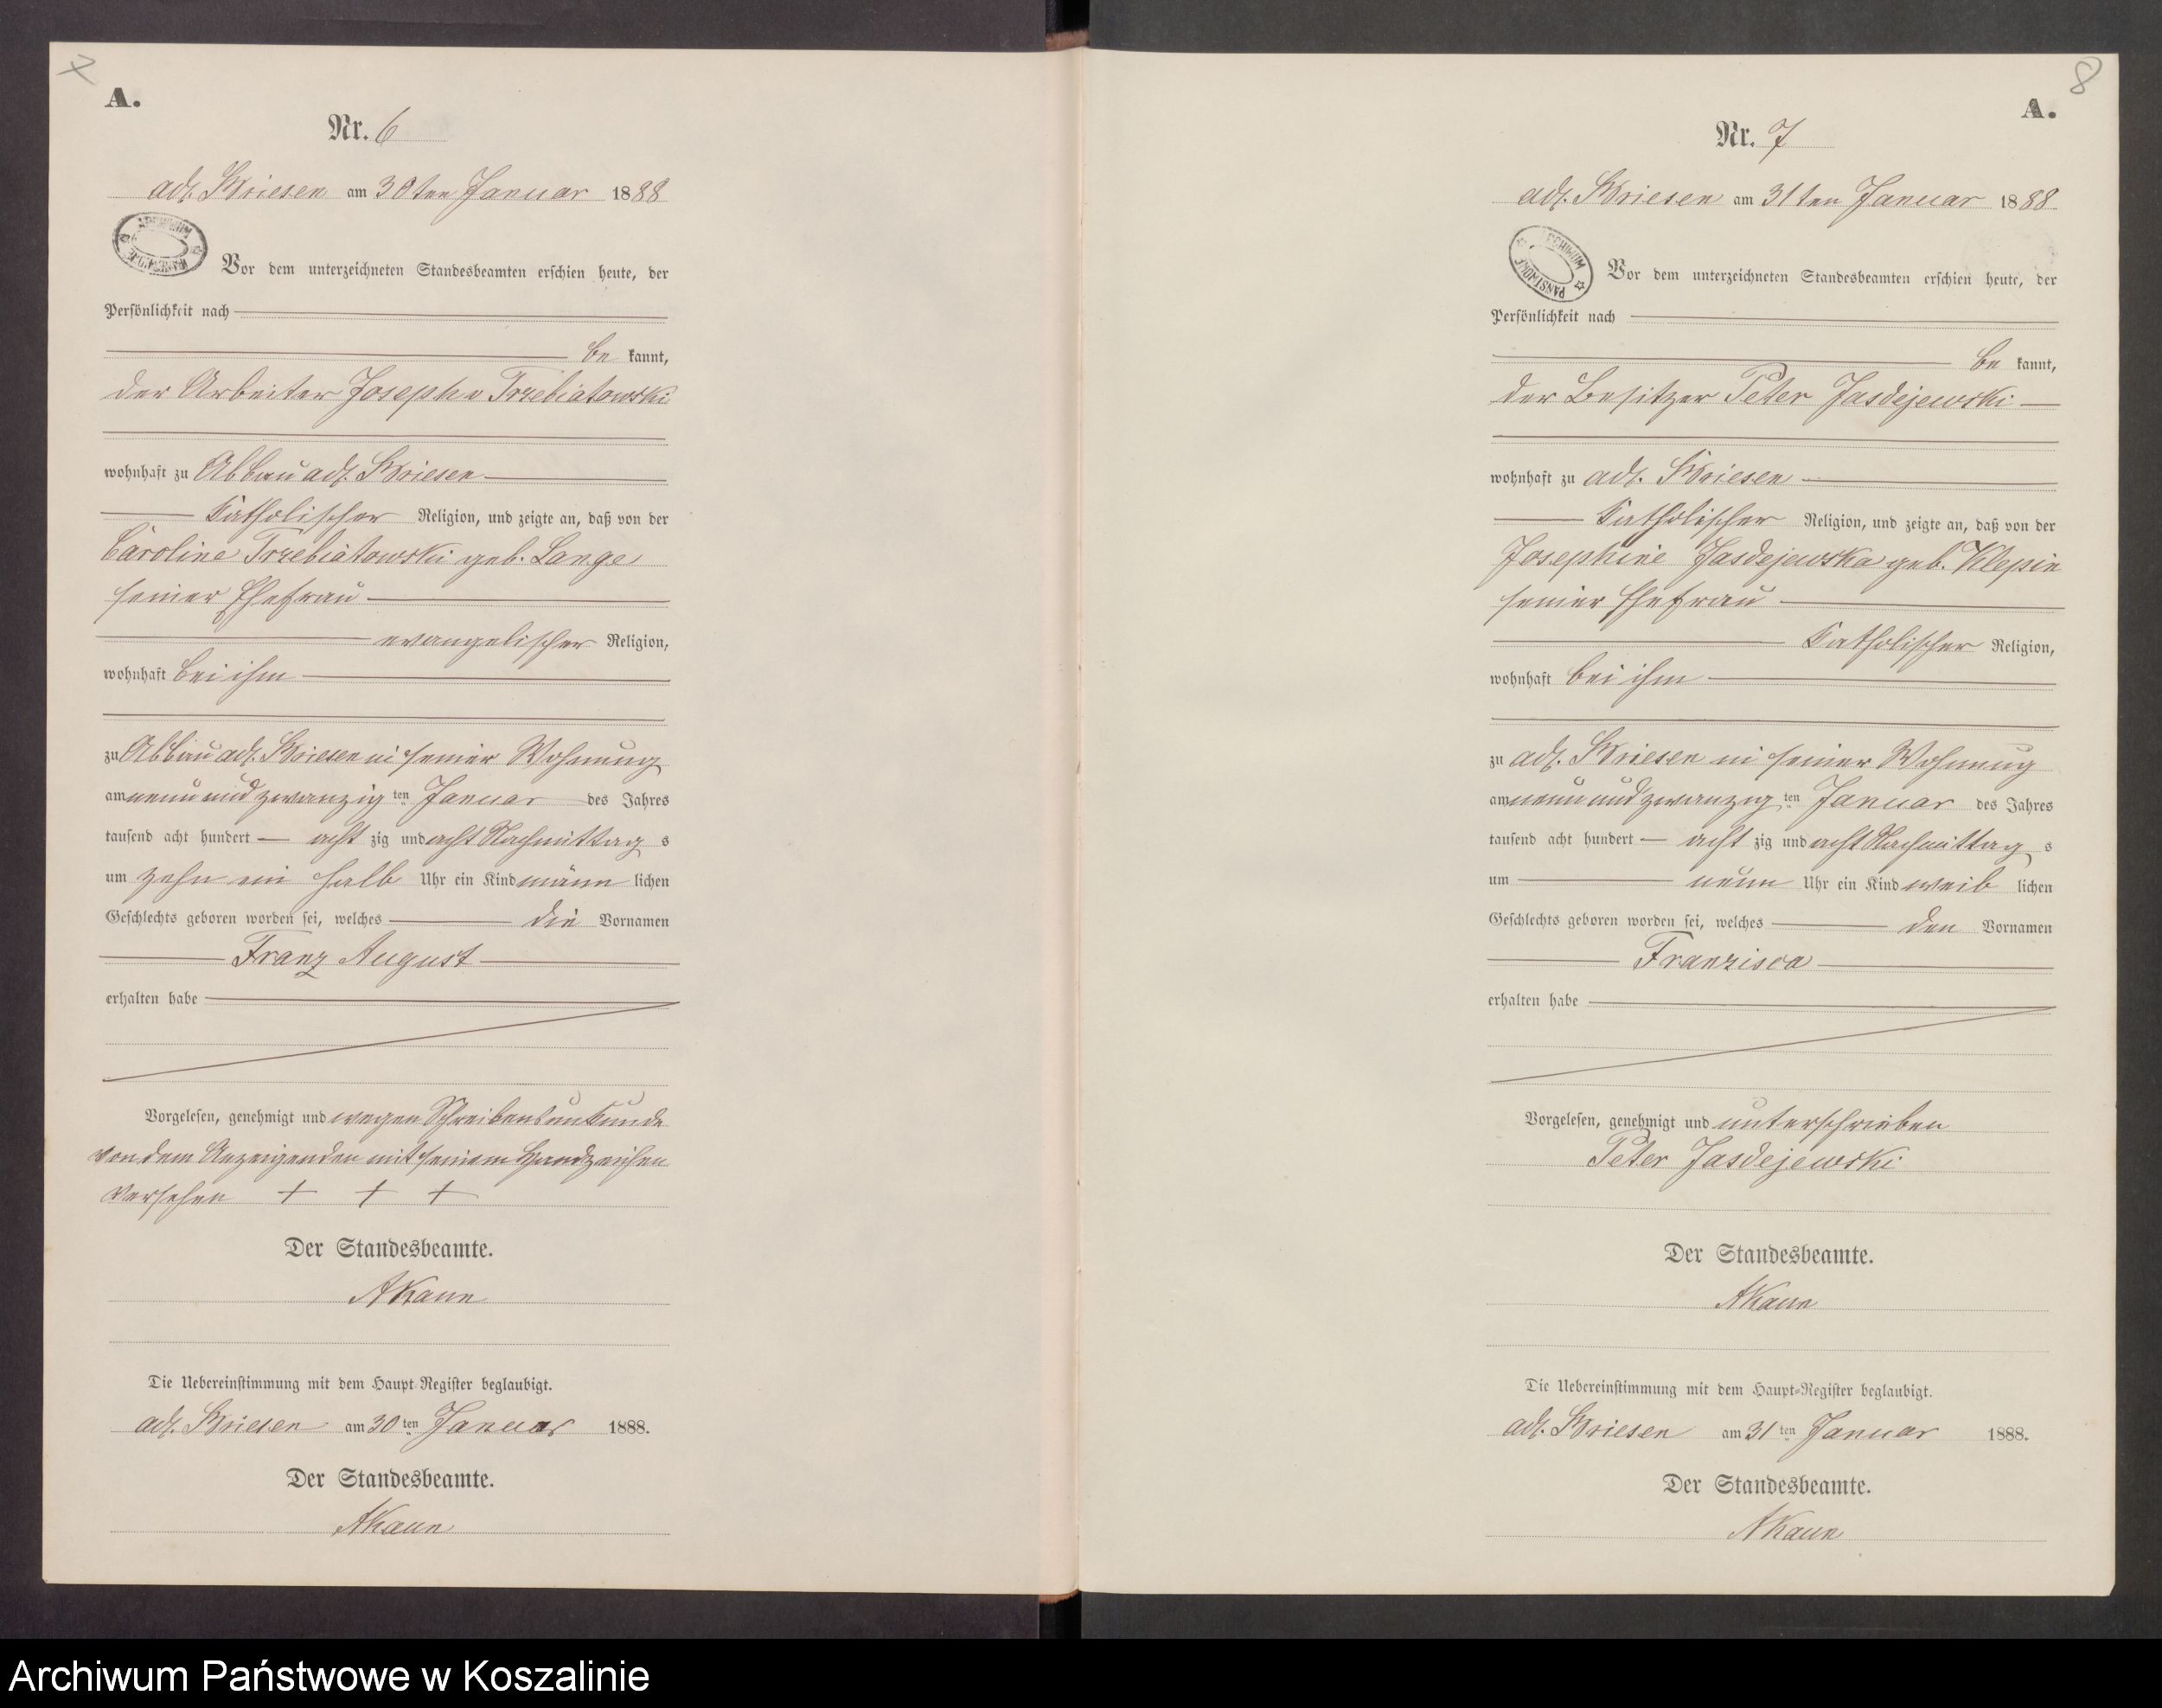 7
A.
Nr. 6
adl. Briesen am 30ten Januar 1888
ARCHIWUM PAŃSTWOWE
Vor dem unterzeichneten Standesbeamten erschien heute, der
Persönlichkeit nach
be kannt,
der Arbeiter Joseph v Trzebiatowski
wohnhaft zu Abbau adl. Briesen
katholischer Religion, und zeigte an, daß von der
Caroline Trzebiatowski geb. Lange
seiner Ehefrau
evangelischer Religion,
wohnhaft bei ihm
zu Abbau adl. Briesen in seiner Wohnung
am neun und zwanzig ten Januar des Jahres
tausend acht hundert acht zig und acht Nachmittag s
um zehn ein halb Uhr ein Kind männ lichen
Geschlechts geboren worden sei, welches die Vornamen
Franz August
erhalten habe
Vorgelesen, genehmigt und wegen Schreibensunkunde
von dem Anzeigenden mit seinem Handzeichen
versehen + + +
Der Standesbeamte.
AKaun
Die Uebereinstimmung mit dem Haupt-Register beglaubigt.
adl. Briesen am 30 ten Januar 1888.
Der Standesbeamte.
AKaun
8
A.
Nr. 7
adl. Briesen am 31ten Januar 1888
ARCHIWUM PAŃSTWOWE
Vor dem unterzeichneten Standesbeamten erschien heute, der
Persönlichkeit nach
be kannt,
der Besitzer Peter Jasdejewski
wohnhaft zu adl. Briesen
katholischer Religion, und zeigte an, daß von der
Josephine Jasdejewska geb. Klepin
seiner Ehefrau
katholischer Religion,
wohnhaft bei ihm
zu adl. Briesen in seiner Wohnung
am neun und zwanzig ten Januar des Jahres
tausend acht hundert acht zig und acht Nachmittag s
um neun Uhr ein Kind weib lichen
Geschlechts geboren worden sei, welches den Vornamen
Franzisca
erhalten habe
Vorgelesen, genehmigt und unterschrieben
Peter Jasdejewski
Der Standesbeamte.
AKaun
Die Uebereinstimmung mit dem Haupt-Register beglaubigt.
adl. Briesen am 31 ten Januar 1888.
Der Standesbeamte.
AKaun
Archiwum Państwowe w Koszalinie